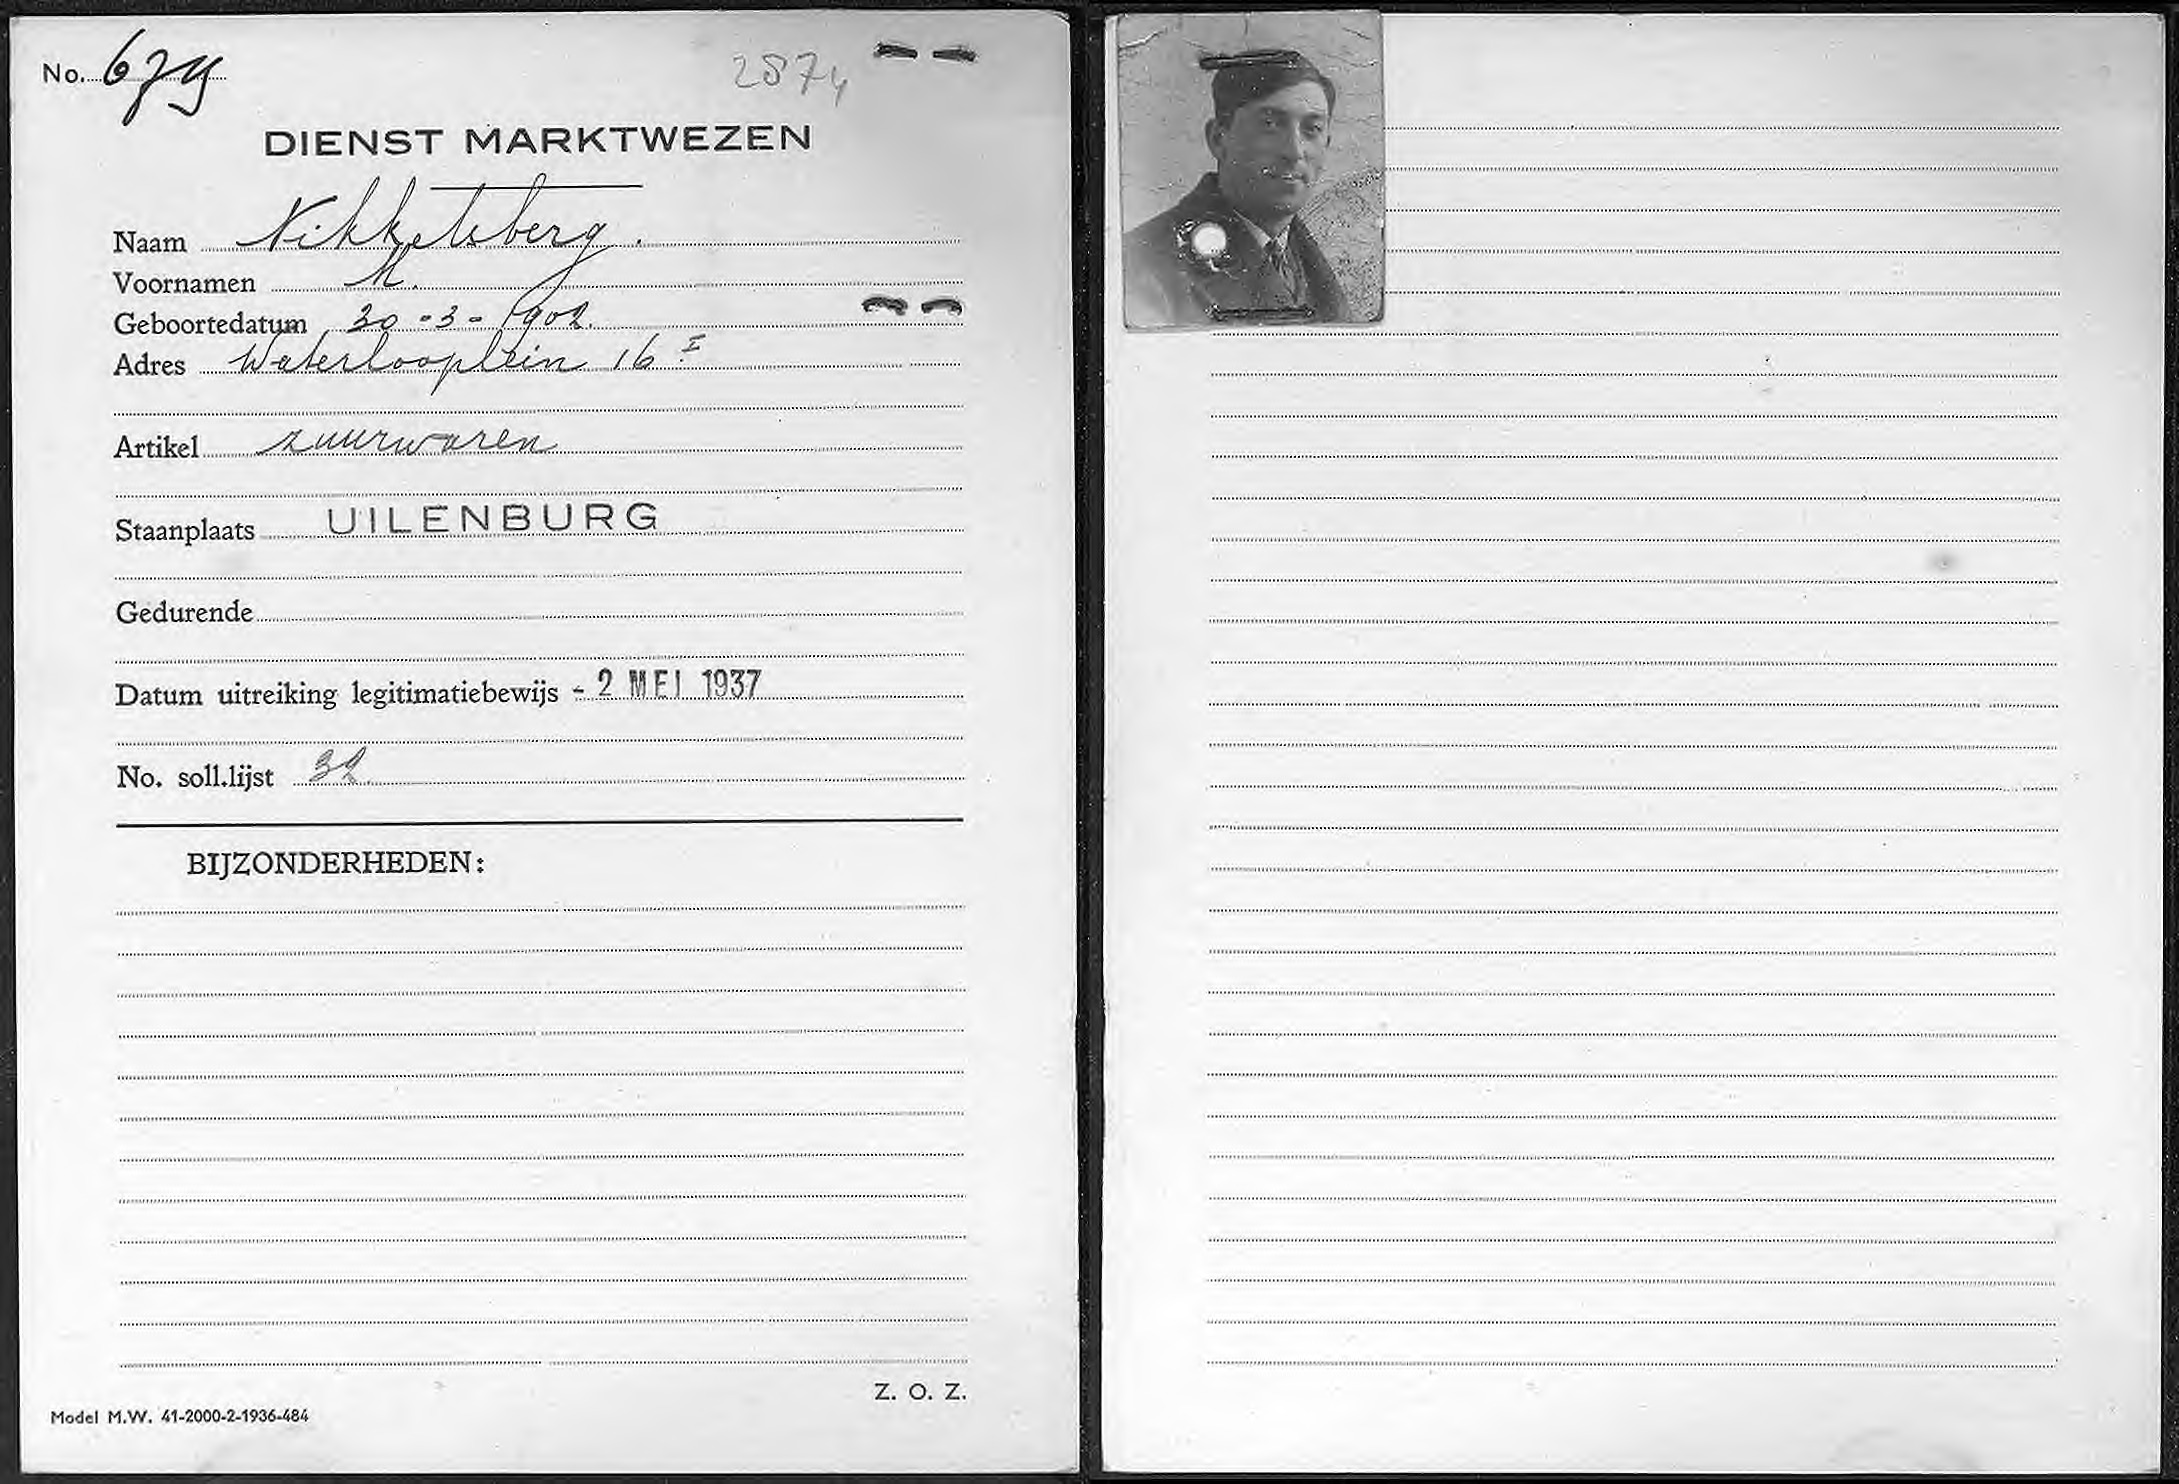 No. 679
2874
DIENST MARKTWEZEN
Naam Nikkelsberg.
Voornamen M.
Geboortedatum 30-3-1902.
Adres Waterlooplein 16 I
Artikel zuurwaren
Staanplaats UILENBURG
Gedurende
Datum uitreiking legitimatiebewijs - 2 MEI 1937
No. soll.lijst 32.
BIJZONDERHEDEN:
Z. O. Z.
Model M.W. 41-2000-2-1936-484